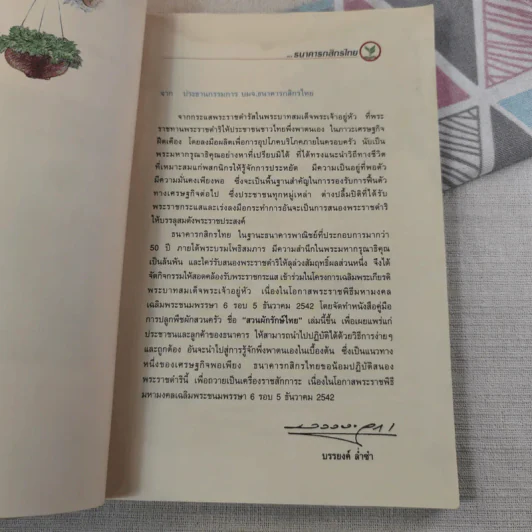 ธนาคารกสิกรไทย
จาก ประธานกรรมการ บมจ.ธนาคารกสิกรไทย
จากกระแสพระราชดำรัสในพระบาทสมเด็จพระเจ้าอยู่หัว ที่พระ
ราชทานพระราชดำริให้ประชาชนชาวไทยพึ่งพาตนเอง ในภาวะเศรษฐกิจ
ฝืดเคือง โดยลงมือผลิตเพื่อการอุปโภคบริโภคภายในครอบครัว นับเป็น
พระมหากรุณาธิคุณอย่างหาที่เปรียบมิได้ ที่ได้ทรงแนะนำวิถีทางชีวิต
ที่เหมาะสมแก่พสกนิกรให้รู้จักการประหยัด มีความเป็นอยู่ที่พอตัว
มีความมั่นคงเพียงพอ ซึ่งจะเป็นพื้นฐานสำคัญในการรองรับการฟื้นตัว
ทางเศรษฐกิจต่อไป ซึ่งประชาชนทุกหมู่เหล่า ต่างปลื้มปีติที่ได้รับ
พระราชกระแสและเร่งลงมือกระทำการอันจะเป็นการสนองพระราชดำริ
ให้บรรลุสมดังพระราชประสงค์
ธนาคารกสิกรไทย ในฐานะธนาคารพาณิชย์ที่ประกอบการมากว่า
50 ปี ภายใต้พระบรมโพธิสมภาร มีความสำนึกในพระมหากรุณาธิคุณ
เป็นล้นพ้น และใคร่รับสนองพระราชดำริให้ลุล่วงสัมฤทธิ์ผลส่วนหนึ่ง จึงได้
จัดกิจกรรมให้สอดคล้องรับพระราชกระแส เข้าร่วมในโครงการเฉลิมพระเกียรติ
พระบาทสมเด็จพระเจ้าอยู่หัว เนื่องในโอกาสพระราชพิธีมหามงคล
เฉลิมพระชนมพรรษา 6 รอบ 5 ธันวาคม 2542 โดยจัดทำหนังสือคู่มือ
การปลูกพืชผักสวนครัว ชื่อ "สวนผักรักษ์ไทย" เล่มนี้ขึ้น เพื่อเผยแพร่แก่
ประชาชนและลูกค้าของธนาคาร ให้สามารถนำไปปฏิบัติได้ด้วยวิธีการง่ายๆ
และถูกต้อง อันจะนำไปสู่การรู้จักพึ่งพาตนเองในเบื้องต้น ซึ่งเป็นแนวทาง
หนึ่งของเศรษฐกิจพอเพียง ธนาคารกสิกรไทยขอน้อมปฏิบัติสนอง
พระราชดำรินี้ เพื่อถวายเป็นเครื่องราชสักการะ เนื่องในโอกาสพระราชพิธี
มหามงคลเฉลิมพระชนมพรรษา 6 รอบ 5 ธันวาคม 2542
บรรยงค์ ล่ำซำ